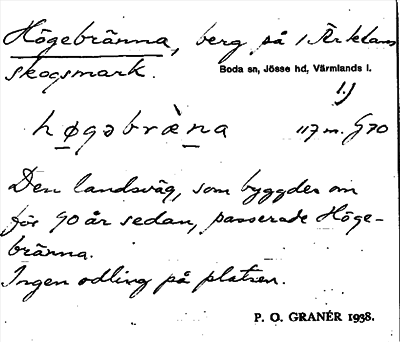 Högebränna, berg på 1 Årklams
skogsmark.
Boda sn, Jösse hd, Värmlands l.
1.)
høgəbræ̀na 117 m. G 70
Den landsväg, som byggdes om
för 90 år sedan, passerade Höge-
bränna.
Ingen odling på platsen.
P. O. GRANÉR 1938.